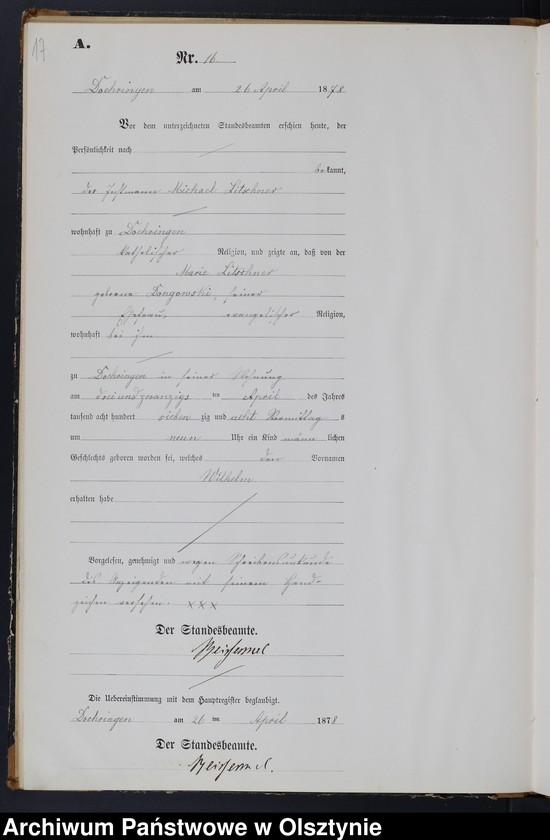 17
A.
Nr. 16
Doehringen am 26 April 1878
Vor dem unterzeichneten Standesbeamten erschien heute, der
Persönlichkeit nach
bekannt,
der Instmann Michael Litschner
wohnhaft zu Doehringen
katholischer Religion, und zeigte an, daß von der
Marie Litschner
geborne Dongowski, seiner
Ehefrau, evangelischer Religion,
wohnhaft bei ihm
zu Doehringen in seiner Wohnung
am dreiundzwanzigs ten April des Jahres
tausend acht hundert sieben zig und acht Vormittag s
um neun Uhr ein Kind männ lichen
Geschlechts geboren worden sei, welches den Vornamen
Wilhelm
erhalten habe
Vorgelesen, genehmigt und wegen Schreibensunkunde
des Anzeigenden mit seinem Hand-
zeichen versehen. XXX
Der Standesbeamte.
Die Uebereinstimmung mit dem Hauptregister beglaubigt.
Doehringen am 26 ten April 1878
Der Standesbeamte.
Archiwum Państwowe w Olsztynie